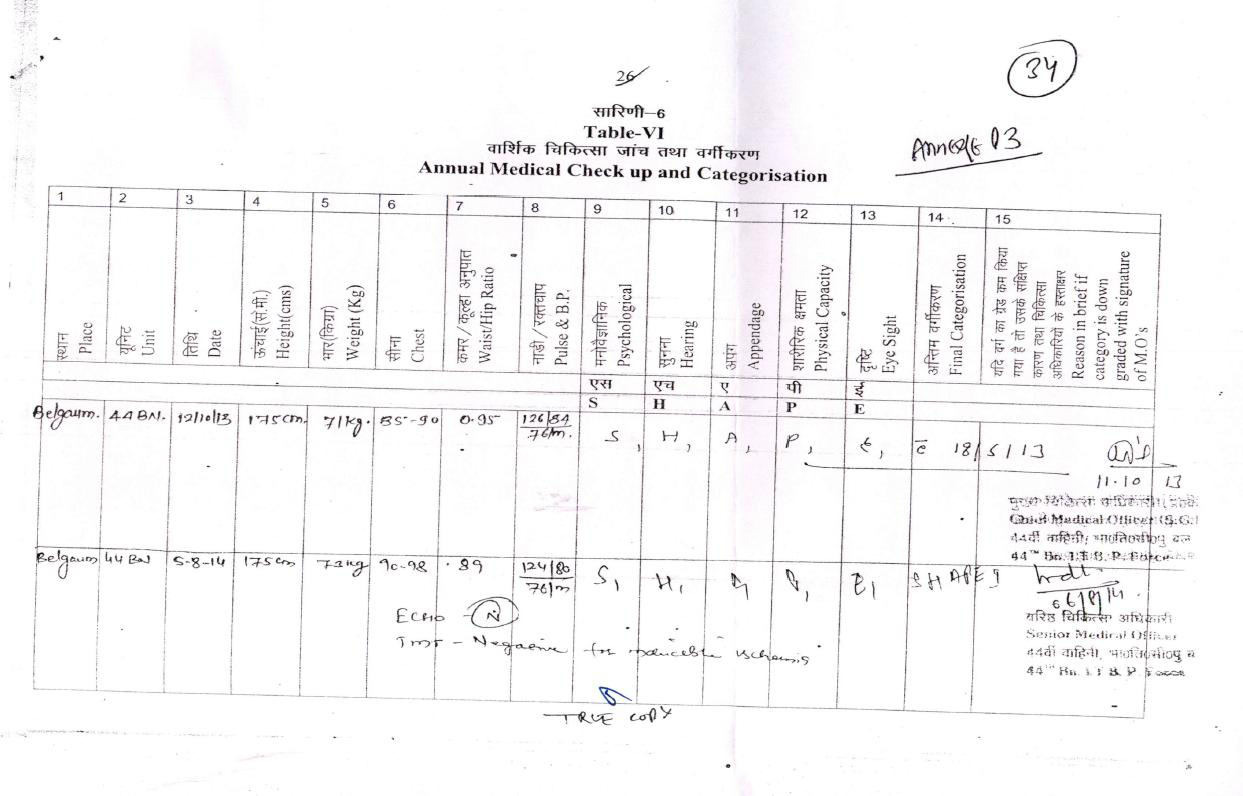 34
26
सारिणी–6
Table-VI
वार्शिक चिकित्सा जांच तथा वर्गीकरण
Annual Medical Check up and Categorisation
1 2 3 4 5 6 7 8 9 10 11 12 13 14 15
स्थान
Place
यूनिट
Unit
तिथि
Date
ऊंचाई(से.मी.)
Height(cms)
भार(किग्रा)
Weight (Kg)
सीना
Chest
कमर / कूल्हा अनुपात
Waist/Hip Ratio
नाडी / रक्तचाप
Pulse & B.P.
मनोवैज्ञानिक
Psychological
सुनना
Hearing
अपंग
Appendage
शारीरिक क्षमता
Physical Capacity
दृष्टि
Eye Sight
अन्तिम वर्गीकरण
Final Categorisation
यदि वर्ग का ग्रेड कम किया
गया है तो उसके संक्षिप्त
कारण तथा चिकित्सा
अधिकारियो के हस्ताक्षर
Reason in brief if
category is down
graded with signature
of M.O's
एस एच ए पी ई
S H A P E
Belgaum. 44 BN. 12/10/13 175cm. 71kg. 85-90 0.95 126/84
76/m.
S, H, A, P, E, 18/5/13
11.10 13
Chief Medical Officer (S.G.)
44वीं वाहिनी,
44TH Bn. I.T.B.P. Force
Belgaum 44 BN 5-8-14 175cm 73kg 90-98 .89 124/80
76/m
S, H, A, P, E, SHAPE 1
ECHO - N
TMT - Negative for inducible ischemia
वरिष्ठ चिकित्सा अधिकारी
Senior Medical Officer
44वीं वाहिनी,
44TH Bn. I.T.B.P. Force
TRUE COPY